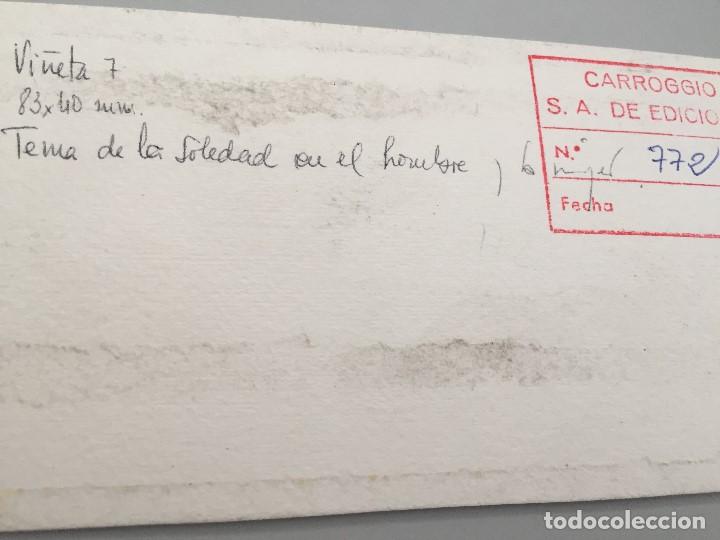 Viñeta 7
83x40 mm.
Tema de la Soledad en el hombre, la mujer
CARROGGIO
S. A. DE EDICIO
N.º 772
Fecha
todocoleccion
todocoleccion.net